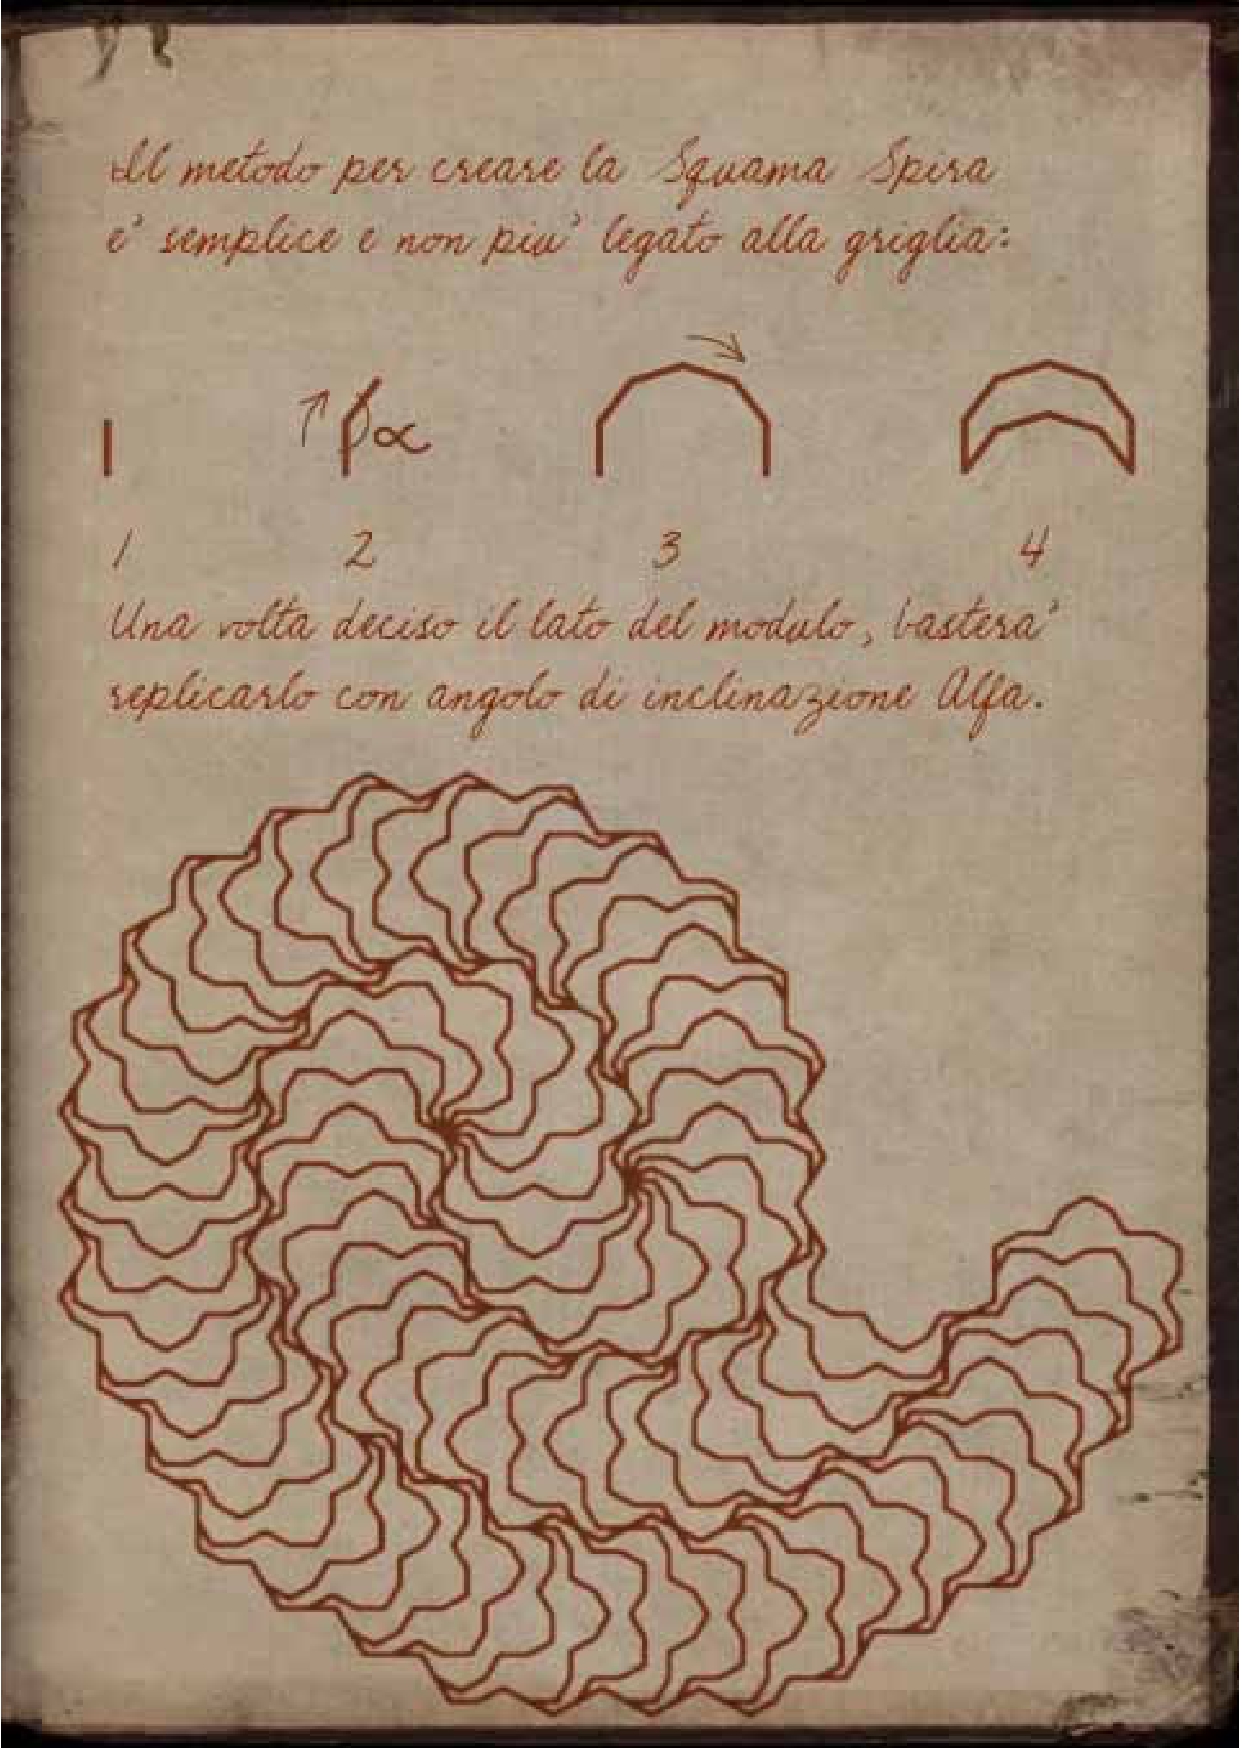 Il metodo per creare la Squama Spira
e' semplice e non piu' legato alla griglia:
α
1 2 3 4
Una volta deciso il lato del modulo, bastera'
replicarlo con angolo di inclinazione Alfa.